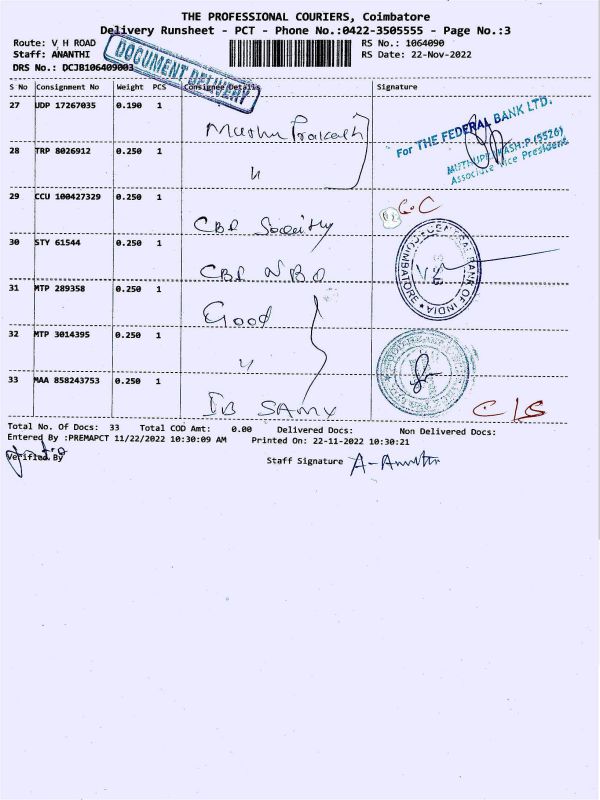 THE PROFESSIONAL COURIERS, Coimbatore
Delivery Runsheet - PCT - Phone No.:0422-3505555 - Page No.:3
Route: V H ROAD
RS No.: 1064090
Staff: ANANTHI
RS Date: 22-Nov-2022
DRS No.: DCJB106409003
DOCUMENT DELIVERY
S No Consignment No Weight PCS Consignee Details Signature
27 UDP 17267035 0.190 1
For THE FEDERAL BANK LTD.
MUTHUPRAKASH.P.(5526)
Associate Vice President
28 TRP 8026912 0.250 1 "
29 CCU 100427329 0.250 1 CBI
30 STY 61544 0.250 1 CBI
CENTRAL BANK OF INDIA
COIMBATORE
31 MTP 289358 0.250 1 Good
32 MTP 3014395 0.250 1 "
33 MAA 858243753 0.250 1 IB
Total No. Of Docs: 33 Total COD Amt: 0.00 Delivered Docs: Non Delivered Docs:
Entered By :PREMAPCT 11/22/2022 10:30:09 AM Printed On: 22-11-2022 10:30:21
Verified By
Staff Signature